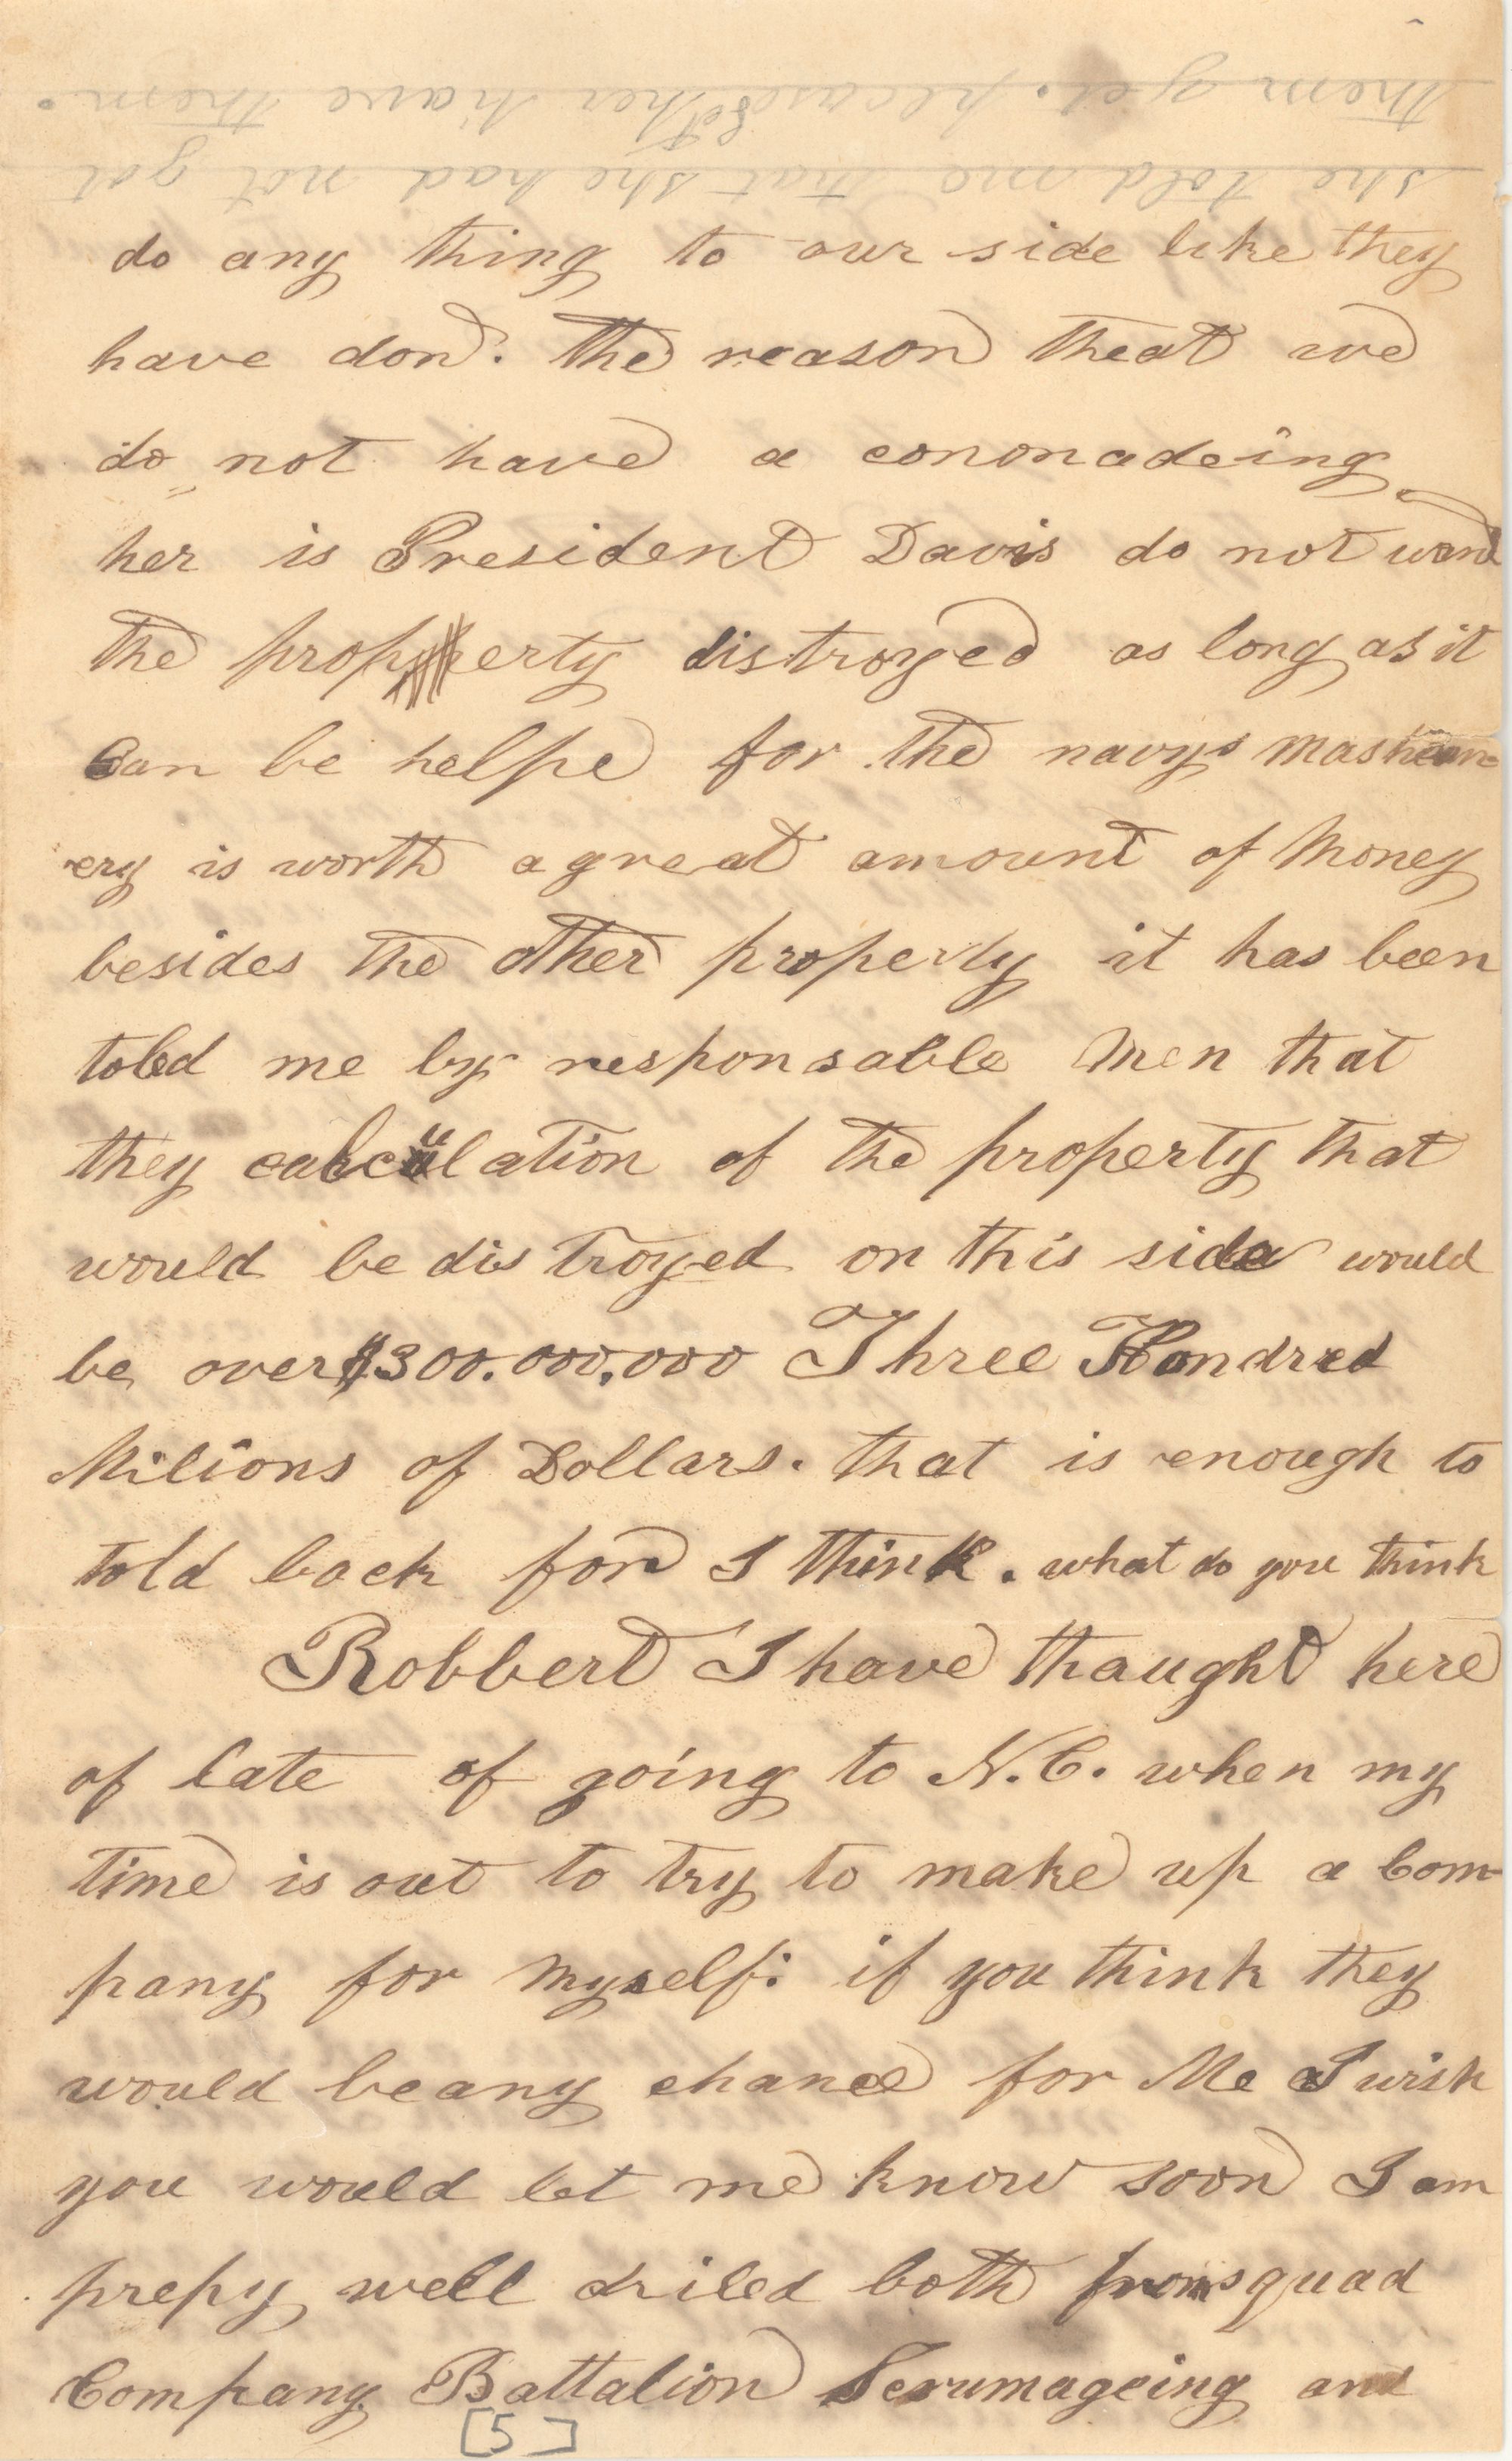 she told me that she had not got
them yet. because ther have them.
do any thing to our side like they
have don. the reason theat we
do not have a cononadeing
her is President Davis do not wand
the property distroyed as long as it
Can be helpe for the navys mashean-
ery is worth a great amount of Money
besides the other property it has been
toled me by responsable Men that
they calculation of the property that
would be distroyed on this side would
be over $300.000,000 Three Hondred
Milions of Dollars. that is enough to
told back for I think. what do you think
Robbert I have thaught here
of late of going to N.C. when my
time is out to try to make up a Com-
pany for Myself: if you think they
would be any chance for Me I wish
you would let me know soon I am
prepy well driled both from squad
Company Battalion Scrumageing and
[5]